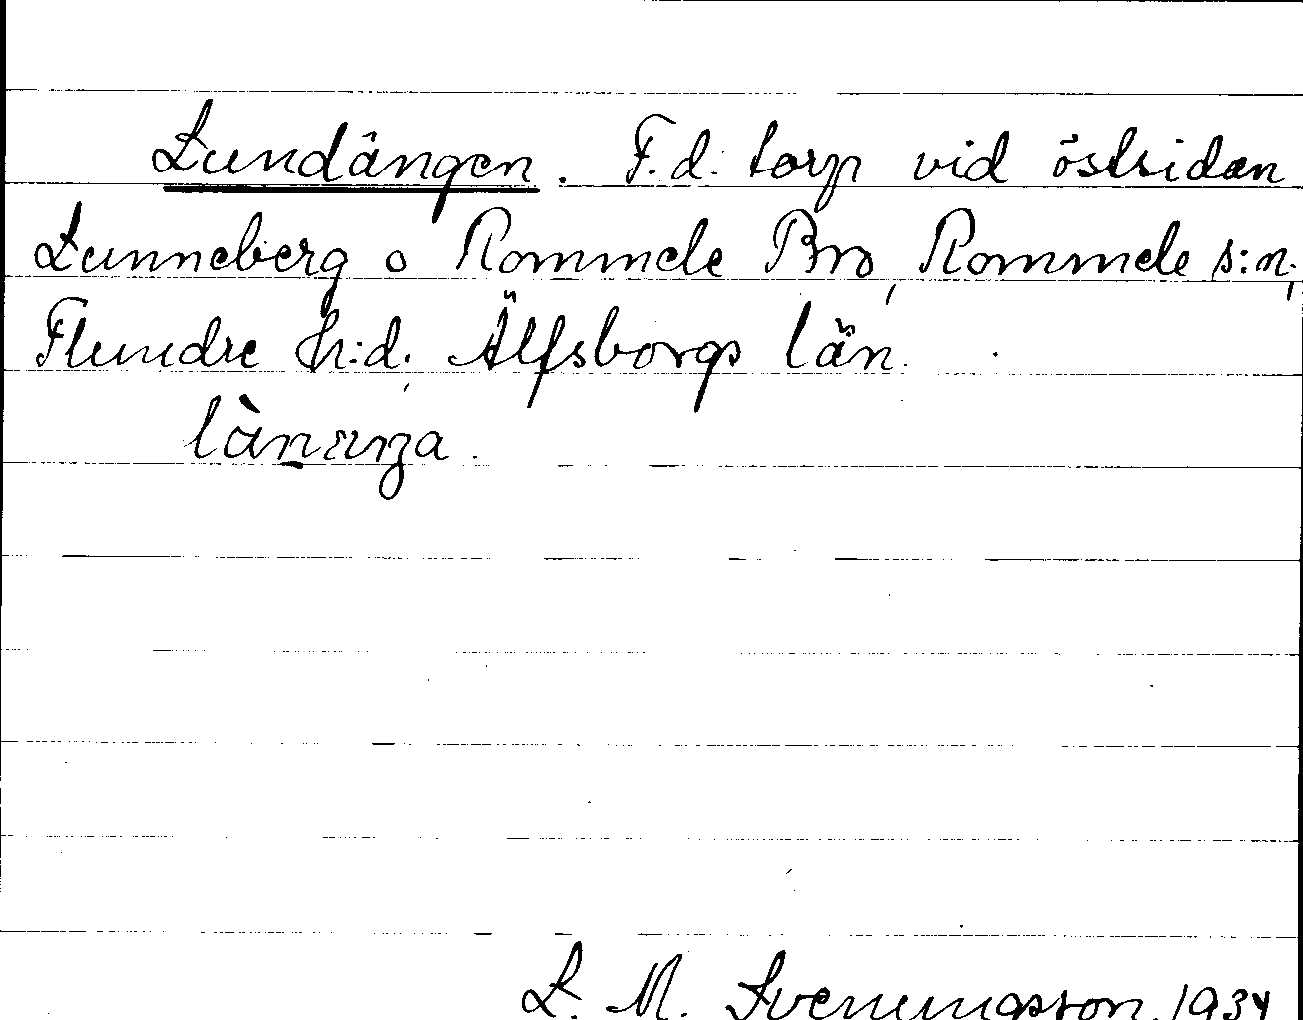 Lundängen. F.d. torp vid östsidan
Lunneberg o Rommele Bro, Rommele s:n,
Flundre h:d. Älfsborgs län.
L. M. Svenungsson 1934